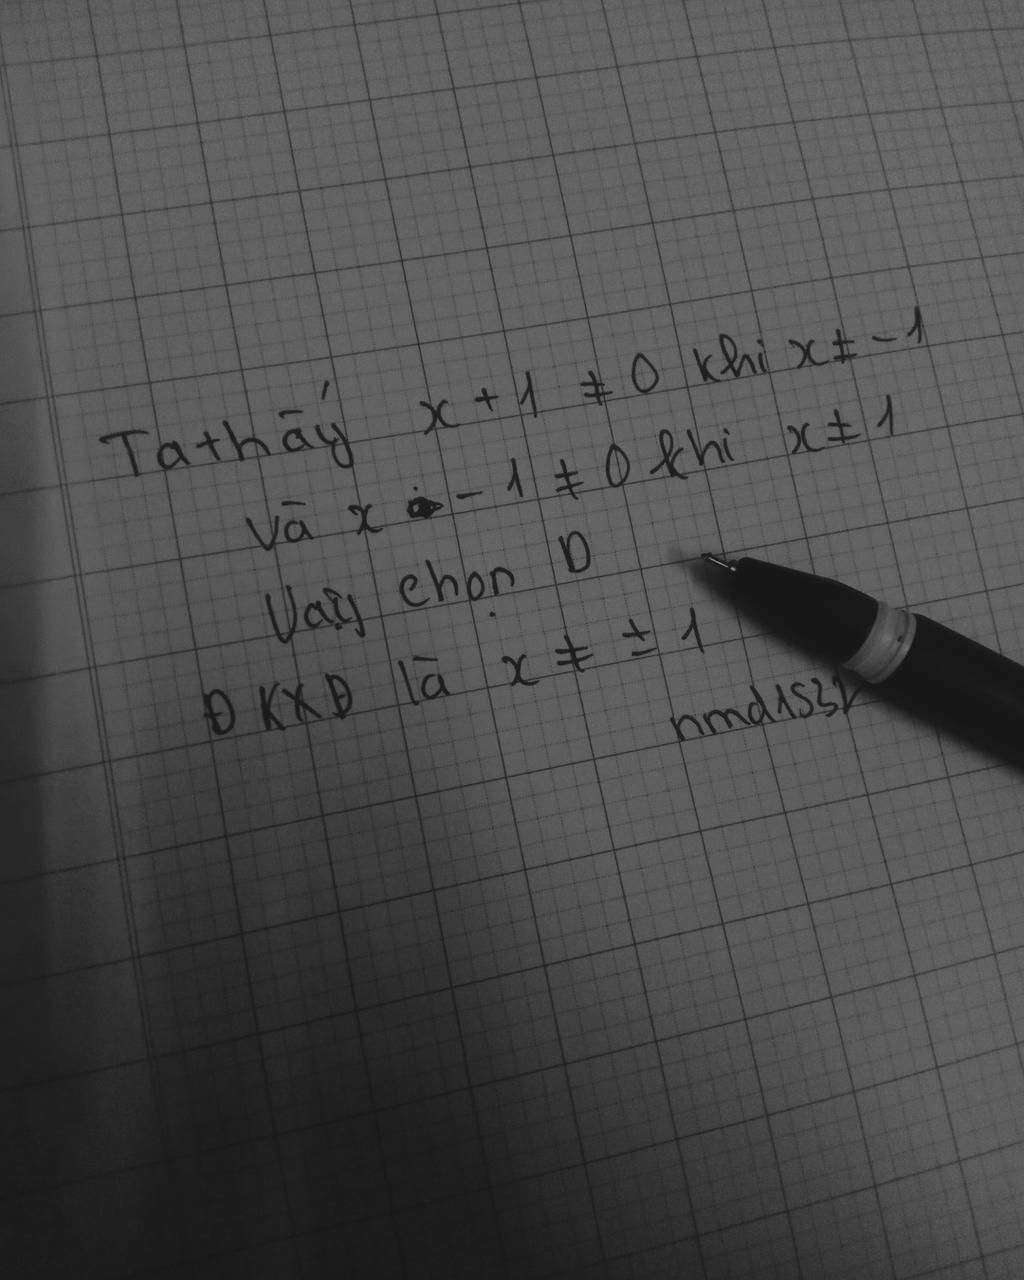 Ta thấy x + 1 ≠ 0 khi x ≠ -1
Và x - 1 ≠ 0 khi x ≠ 1
Vậy chọn D
ĐKXĐ là x ≠ ± 1